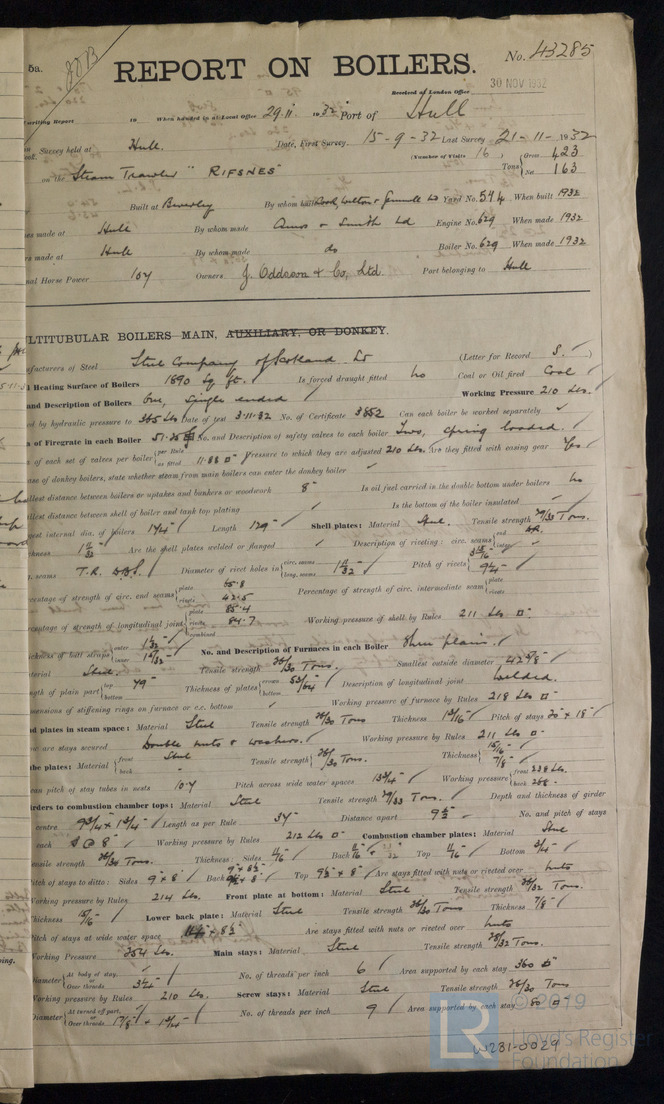 5a.
No. 43285
REPORT ON BOILERS.
Received at London Office 30 NOV 1932
writing Report 19 When handed in at Local Office 29.11.1932 Port of Hull
Survey held at Hull. Date, First Survey. 15-9-32 Last Survey 21-11-1932
(Number of Visits 16)
on the Steam Trawler "RIFSNES" Tons Gross 423 Net 163
Built at Beverley By whom built Cook, Welton & Gemmell Ld Yard No. 574 When built 1932
es made at Hull By whom made Amos & Smith Ld Engine No. 629 When made 1932
rs made at Hull By whom made do Boiler No. 629 When made 1932
nal Horse Power 107 Owners J. Oddsson & Co, Ltd. Port belonging to Hull
LTITUBULAR BOILERS MAIN, AUXILIARY, OR DONKEY.
nufacturers of Steel Steel Company of Scotland Ld (Letter for Record S.)
l Heating Surface of Boilers 1890 Sq ft. Is forced draught fitted no Coal or Oil fired Coal
and Description of Boilers One, Single ended Working Pressure 210 Lbs.
ed by hydraulic pressure to 365 Lbs Date of test 3-11-32 No. of Certificate 3852 Can each boiler be worked separately
a of Firegrate in each Boiler 51.25 No. and Description of safety valves to each boiler Two, spring loaded.
a of each set of valves per boiler per Rule as fitted 11.88 Pressure to which they are adjusted 210 Lbs. Are they fitted with easing gear Yes
ase of donkey boilers, state whether steam from main boilers can enter the donkey boiler
llest distance between boilers or uptakes and bunkers or woodwork 8" Is oil fuel carried in the double bottom under boilers no
llest distance between shell of boiler and tank top plating Is the bottom of the boiler insulated
est internal dia. of boilers 174" Length 129" Shell plates: Material Steel. Tensile strength 29/33 Tons.
hickness Are the shell plates welded or flanged Description of riveting: circ. seams end D.R. inter.
g. seams T.R. D.B.S. Diameter of rivet holes in circ. seams long. seams Pitch of rivets
centage of strength of circ. end seams plate 65.8 rivets 42.5 Percentage of strength of circ. intermediate seam plate rivets
centage of strength of longitudinal joint plate 85.4 rivets 84.7 combined Working pressure of shell by Rules 211 Lbs
hickness of butt straps outer inner No. and Description of Furnaces in each Boiler Three plain.
terial Steel. Tensile strength 26/30 Tons. Smallest outside diameter 42 5/8"
ngth of plain part top bottom 79" Thickness of plates crown bottom 53/64" Description of longitudinal joint welded.
mensions of stiffening rings on furnace or c.c. bottom Working pressure of furnace by Rules 218 Lbs
nd plates in steam space: Material Steel Tensile strength 26/30 Tons Thickness 1 3/16" Pitch of stays 20" x 18"
ow are stays secured Double nuts & washers. Working pressure by Rules 211 Lbs
be plates: Material front back Steel Tensile strength 26/30 Tons. Thickness 15/16" 7/8"
ean pitch of stay tubes in nests 10.7 Pitch across wide water spaces 13 3/4" Working pressure front 238 Lbs. back
irders to combustion chamber tops: Material Steel Tensile strength 29/33 Tons. Depth and thickness of girder
centre 9 3/4" x 1 3/4" Length as per Rule 34" Distance apart 9 1/2" No. and pitch of stays
each @ 8" Working pressure by Rules 212 Lbs Combustion chamber plates: Material Steel
ensile strength 26/30 Tons. Thickness: Sides 11/16 Back 11/16" Top 11/16" Bottom 3/4"
itch of stays to ditto: Sides 9" x 8" Back Top 9 1/2" x 8" Are stays fitted with nuts or riveted over nuts
orking pressure by Rules 214 Lbs. Front plate at bottom: Material Steel Tensile strength 26/32 Tons.
hickness 15/16" Lower back plate: Material Steel Tensile strength 26/30 Tons Thickness 7/8"
itch of stays at wide water space x 8 1/2" Are stays fitted with nuts or riveted over nuts
orking Pressure 254 Lbs. Main stays: Material Steel Tensile strength 28/32 Tons.
iameter At body of stay, or Over threads 3 1/4" No. of threads per inch 6 Area supported by each stay 360
orking pressure by Rules 210 Lbs. Screw stays: Material Steel Tensile strength 26/30 Tons
iameter At turned off part, or Over threads 1 7/8" & 1 3/4" No. of threads per inch 9 Area supported by each stay 80
© 2019
LR Lloyd's Register
Foundation
W231-0029